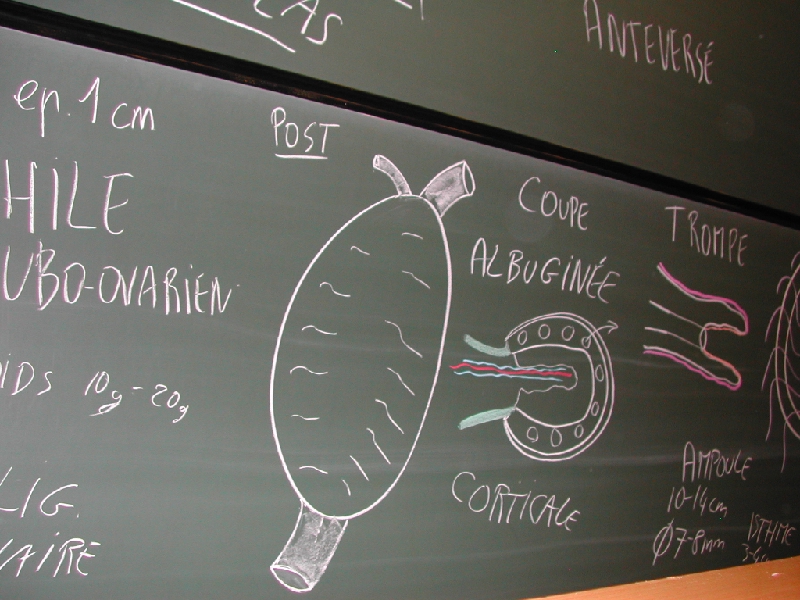 CAS
ANTEVERSÉ
ep. 1 cm
HILE
UBO-OVARIEN
IDS 10g-20g
LIG.
VAIRE
POST
COUPE
ALBUGINÉE
CORTICALE
TROMPE
AMPOULE
10-14cm
Ø7-8mm
ISTHME